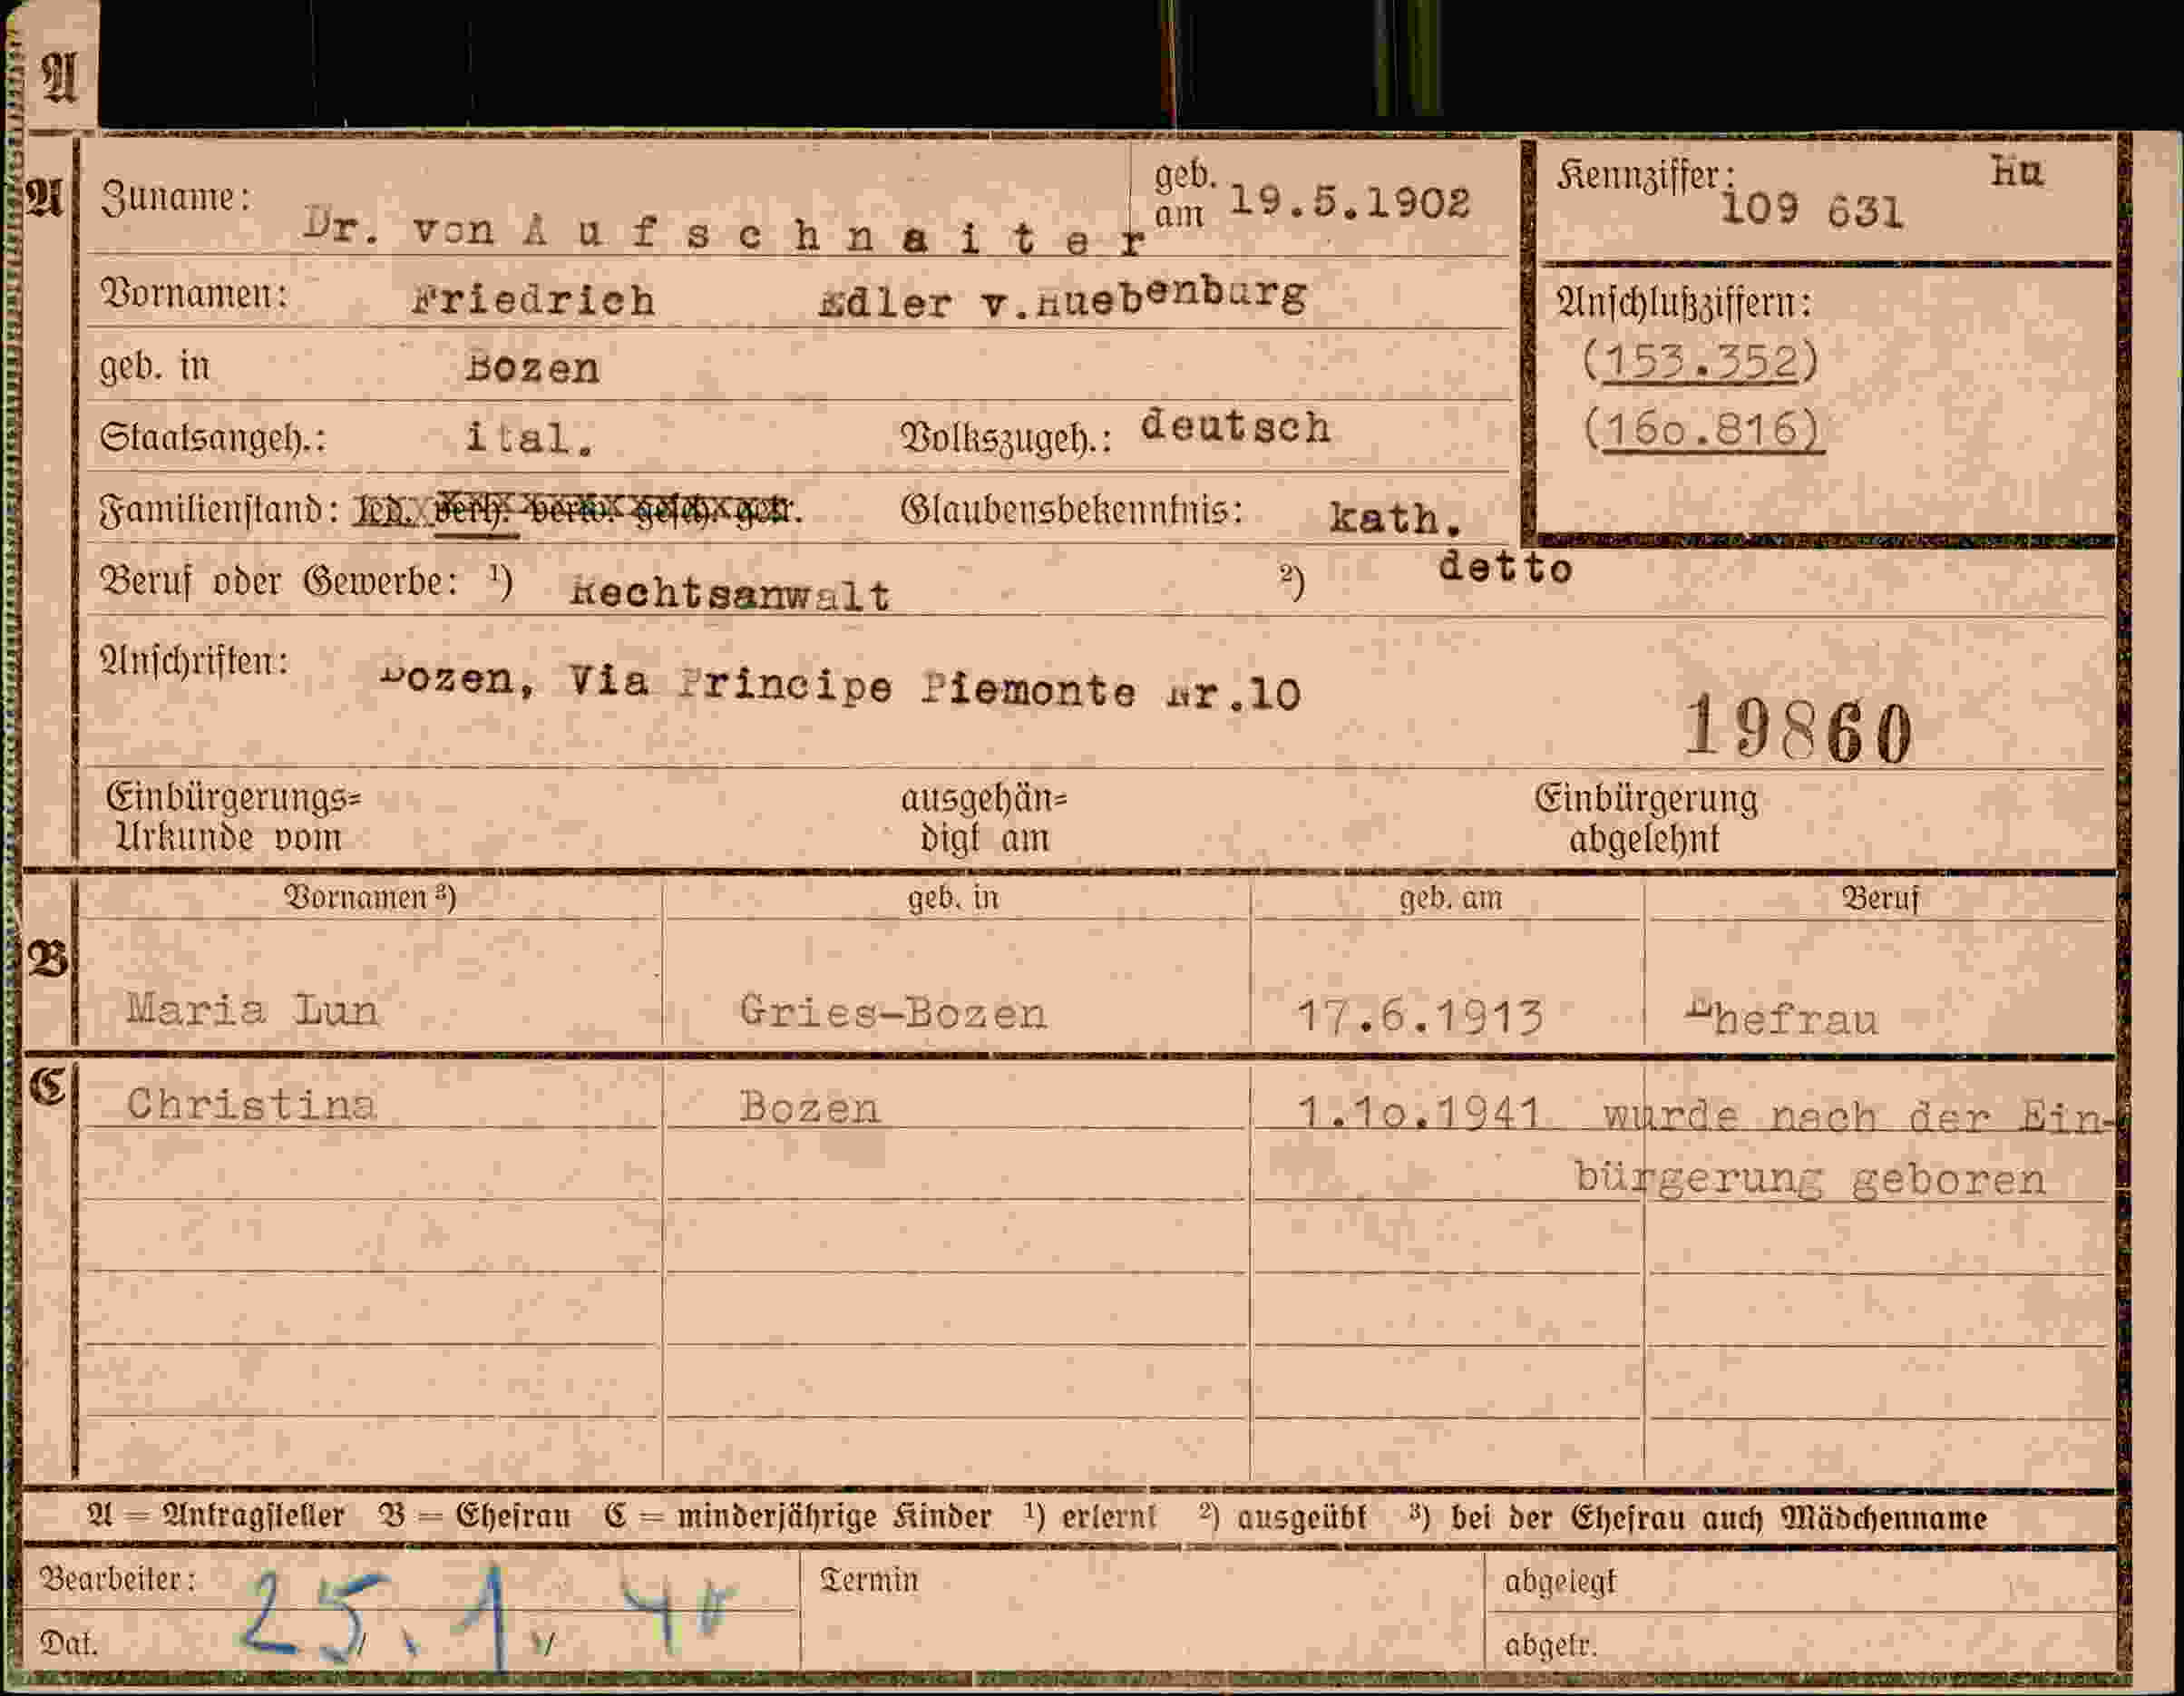 A
A Zuname: Dr. von A u f s c h n a i t e r geb. am 19.5.1902
Kennziffer: 109 631 Hu
Vornamen: Friedrich Edler v.Huebenburg
Anschlußziffern:
(153.352)
(16o.816)
geb. in Bozen
Staatsangeh.: ital. Volkszugeh.: deutsch
Familienstand: led. verh. verw. gesch. getr. Glaubensbekenntnis: kath.
Beruf oder Gewerbe: ¹) Rechtsanwalt ²) detto
Anschriften: Bozen, Via Principe Piemonte Nr.10
19860
Einbürgerungs= ausgehän= Einbürgerung
Urkunde vom digt am abgelehnt
Vornamen ³) geb. in geb. am Beruf
B
Maria Lun Gries-Bozen 17.6.1913 Ehefrau
C Christina Bozen 1.1o.1941 wurde nach der Ein-
bürgerung geboren
A = Antragsteller B = Ehefrau C = minderjährige Kinder ¹) erlernt ²) ausgeübt ³) bei der Ehefrau auch Mädchenname
Bearbeiter: Termin abgelegt
25. 1. 40
Dat. abgetr.